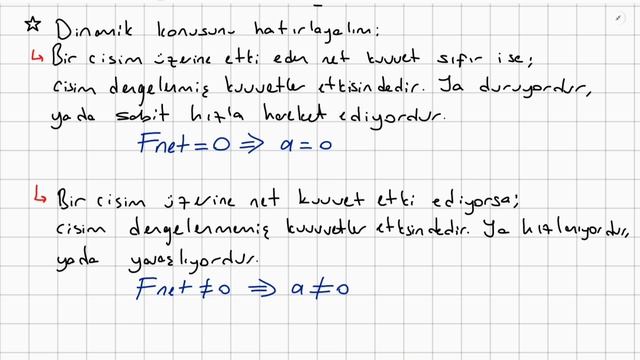 ☆ Dinamik konusunu hatırlayalım;
↳ Bir cisim üzerine etki eden net kuvvet sıfır ise;
cisim dengelenmiş kuvvetler etkisindedir. Ya duruyordur,
yada sabit hızla hareket ediyordur.
Fnet = 0 ⇒ a = 0
↳ Bir cisim üzerine net kuvvet etki ediyorsa;
cisim dengelenmemiş kuvvetler etkisindedir. Ya hızlanıyordur,
yada yavaşlıyordur.
Fnet ≠ 0 ⇒ a ≠ 0